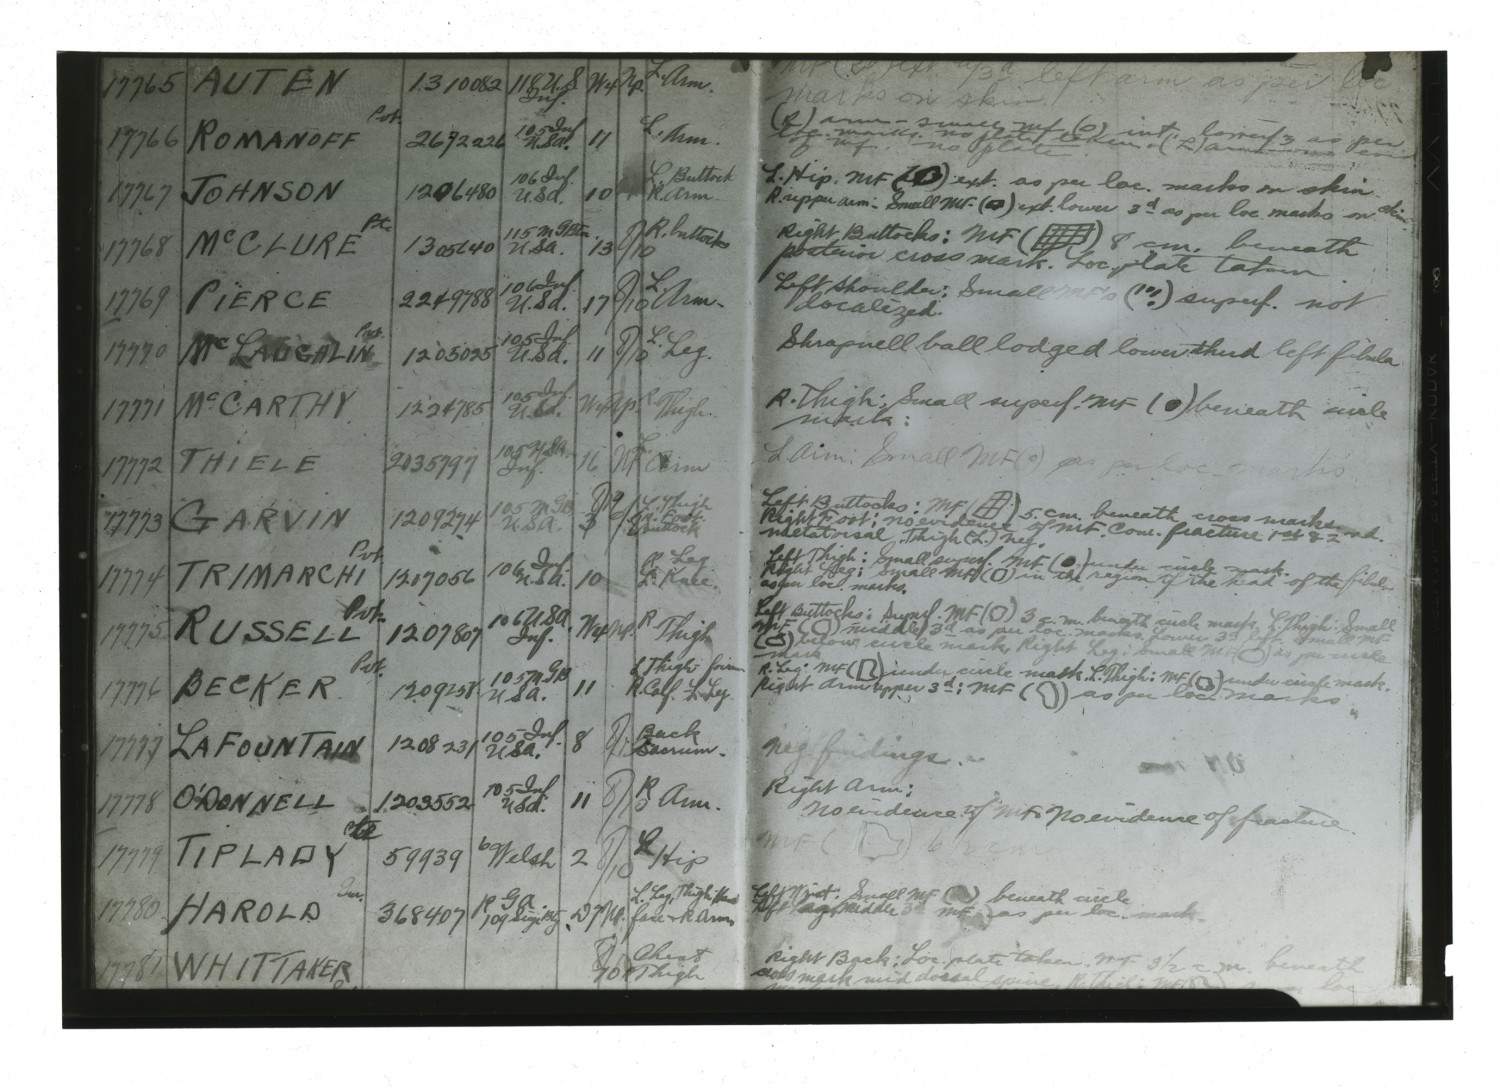 17765 AUTEN 1310082 118 U.S. Inf. W4 Np. L. Arm. MF ext 3d left arm as per loc
marks on skin.
17766 ROMANOFF Pvt. 2672226 105 Inf U.Sa. 11 L. Arm. (L) arm - small MF (o) int. lower 3 as per
loc. marks. no plate taken (L) arm
of MF. no plate.
17767 JOHNSON 1206480 106 Inf U.Sa. 10 L. Buttock R. Arm. L. Hip. MF ext. as per loc. marks on skin
R. upper arm - Small MF. ext. lower 3d as per loc marks on skin.
17768 McCLURE Pte. 1305640 115 M G Btn U.Sa. 13 8/10 R. buttocks Right Buttocks: MF ( ) 8 cm. beneath
posterior cross mark. Loc. plate taken
17769 PIERCE 2249788 106 Inf. U.Sa. 17 8/10 L. Arm. Left Shoulder: Small MF's superf. not
localized.
17770 McLAUGHLIN Pvt. 1205025 105 Inf U.Sa. 11 8/10 L. Leg. Shrapnell ball lodged lower third left fibula
17771 McCARTHY 1224785 105 Inf U.Sa. W4 Np. R Thigh. R. Thigh: Small superf. MF ( ) beneath circle
mark:
17772 THIELE 2035797 105 USa. Inf. 16 L Arm L Arm: Small MF (o) as per loc. marks
17773 GARVIN 1209274 105 M GB U.Sa. 3 L. Thigh R. Foot Buttock Left Buttocks: MF ( ) 5 cm. beneath cross marks.
Right Foot: no evidence of MF. Com. fracture 1st & 2nd.
metatarsal. Thigh (L.) neg.
17774 TRIMARCHI Pvt. 1207056 106 Inf U.Sa. 10 R Leg L. Knee. Left Thigh: Small superf. MF ( ) under circle mark.
Right Leg: Small MF ( ) in the region of the head of the fibula
as per loc. marks.
17775 RUSSELL Pvt. 1207807 106 U Sa Inf. W4 Np. R Thigh Left Buttocks: Superf. MF ( ) 3 c.m. beneath circle mark. L Thigh: Small
MF ( ) middle 3d as per loc. marks. Lower 3d left. Small MF
( ) below circle mark. Right Leg: Small MF ( ) as per circle
mark
17776 BECKER Pvt. 1209258 105 M GB U.Sa. 11 L Thigh R. Calf. L. Leg R. Leg: MF ( ) under circle mark. L. Thigh: MF ( ) under circle mark.
Right Arm upper 3d: MF ( ) as per loc. marks
17777 LAFOUNTAIN 1208231 105 Inf. U.Sa. 8 Back Sacrum. neg findings.
17778 O'DONNELL 1203552 105 Inf U.Sa. 11 8/10 R Arm. Right Arm:
No evidence of MF. No evidence of fracture.
17779 TIPLADY Pte 59939 6 Welsh 2 8/10 L Hip MF ( ) 6 cm
17780 HAROLD Gnr. 368407 R Ga 109 Siege By. D7 Np. L. Leg, Thigh face & R Arm Left Wrist. Small MF ( ) beneath circle
Left leg middle 3d MF as per loc. mark.
17781 WHITTAKER 8/10 Chest Thigh Right Back: Loc. plate taken. MF 3½ c.m. beneath
cross mark mid dorsal spine. R. Thigh: MF ( )